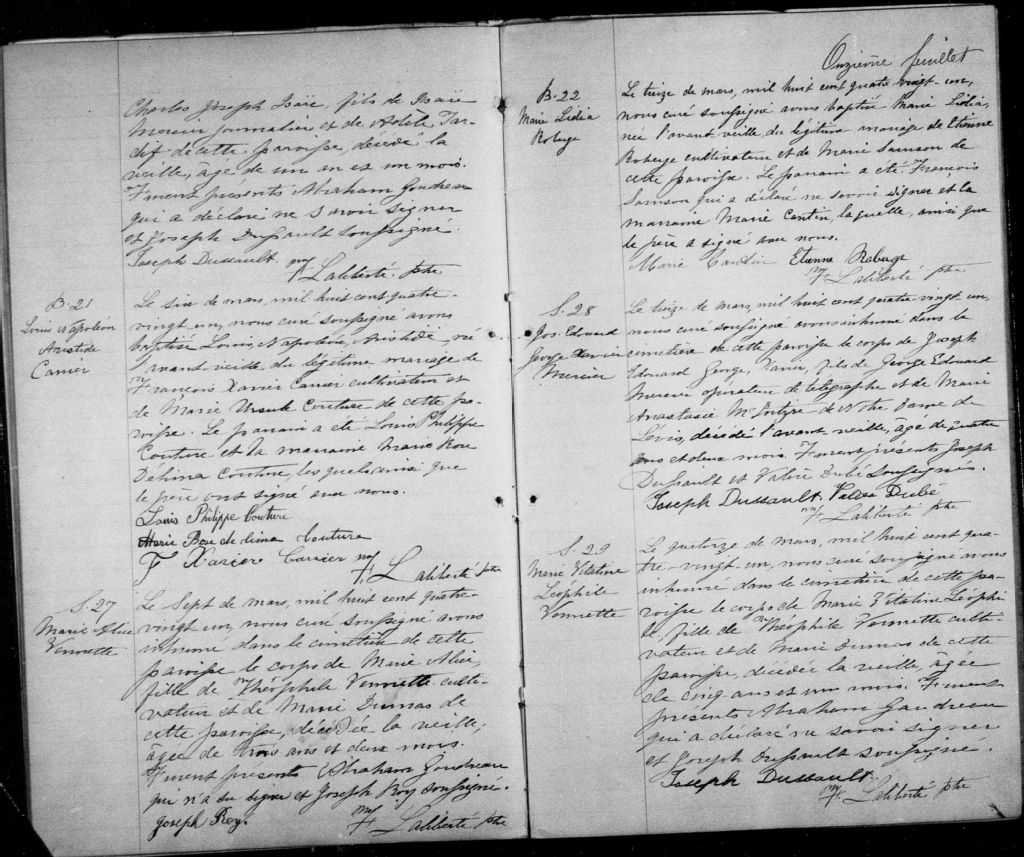 Charles Joseph Isaïe, fils de Isaïe
Mercier journalier et de Adèle Tar-
dif de cette paroisse, décédé la
veille, âgé de un an et un mois.
Furent présents Abraham Goudreau
qui a déclaré ne savoir signer
et Joseph Dussault soussigné.
Joseph Dussault. F. Laliberté ptre
B. 21
Louis Napoléon
Aristide
Carrier
Le six de mars, mil huit cent quatre-
vingt un, nous curé soussigné avons
baptisé Louis, Napoléon, Aristide, né
l'avant veille du légitime mariage de
François Xavier Carrier cultivateur et
de Marie Ursule Couture de cette pa-
roisse. Le parrain a été Louis Philippe
Couture et la marraine Marie Rose
Délima Couture, lesquels ainsi que
le père ont signé avec nous.
Louis Philippe Couture
Marie Rose de lima Couture
F Xavier Carrier F. Laliberté ptre
S. 27
Marie Alice
Vermette
Le Sept de mars, mil huit cent quatre-
vingt un, nous curé soussigné avons
inhumé dans le cimetière de cette
paroisse le corps de Marie Alice,
fille de Théophile Vermette culti-
vateur et de Marie Dumas de
cette paroisse, décédée la veille,
âgée de trois ans et deux mois.
Furent présents Abraham Goudreau
qui n'a su signer et Joseph Roy soussigné.
Joseph Roy. F. Laliberté ptre
Onzième feuillet
B. 22
Marie Lidia
Roberge
Le treize de mars, mil huit cent quatre vingt un,
nous curé soussigné avons baptisé Marie Lidia,
née l'avant veille, du légitime mariage de Etienne
Roberge cultivateur et de Marie Samson de
cette paroisse. Le parrain a été François
Samson qui a déclaré ne savoir signer et la
marraine Marie Cantin, laquelle, ainsi que
le père a signé avec nous.
Marie Cantin Etienne Roberge
F. Laliberté ptre
S. 28
Jos. Edouard
George Xavier
Mercier
Le treize de mars, mil huit cent quatre vingt un,
nous curé soussigné avons inhumé dans le
cimetière de cette paroisse le corps de Joseph
Edouard George, Xavier, fils de George Edouard
Mercier opérateur de télégraphe et de Marie
Anastasie McIntyre de Notre Dame de
Lévis, décédé l'avant veille, âgé de quatre
ans et deux mois. Furent présents Joseph
Dussault et Valère Dubé soussignés.
Joseph Dussault. Valère Dubé
F. Laliberté ptre
S. 29
Marie Vitaline
Léophile
Vermette
Le quatorze de mars, mil huit cent qua-
tre-vingt-un, nous curé soussigné avons
inhumé dans le cimetière de cette pa-
roisse le corps de Marie Vitaline Léophi
le, fille de Théophile Vermette culti-
vateur et de Marie Dumas de cette
paroisse, décédée la veille, âgée
de cinq ans et un mois. Furent
présents Abraham Gaudreau
qui a déclaré ne savoir signer
et Joseph Dussault soussigné.
Joseph Dussault.
F. Laliberté ptre